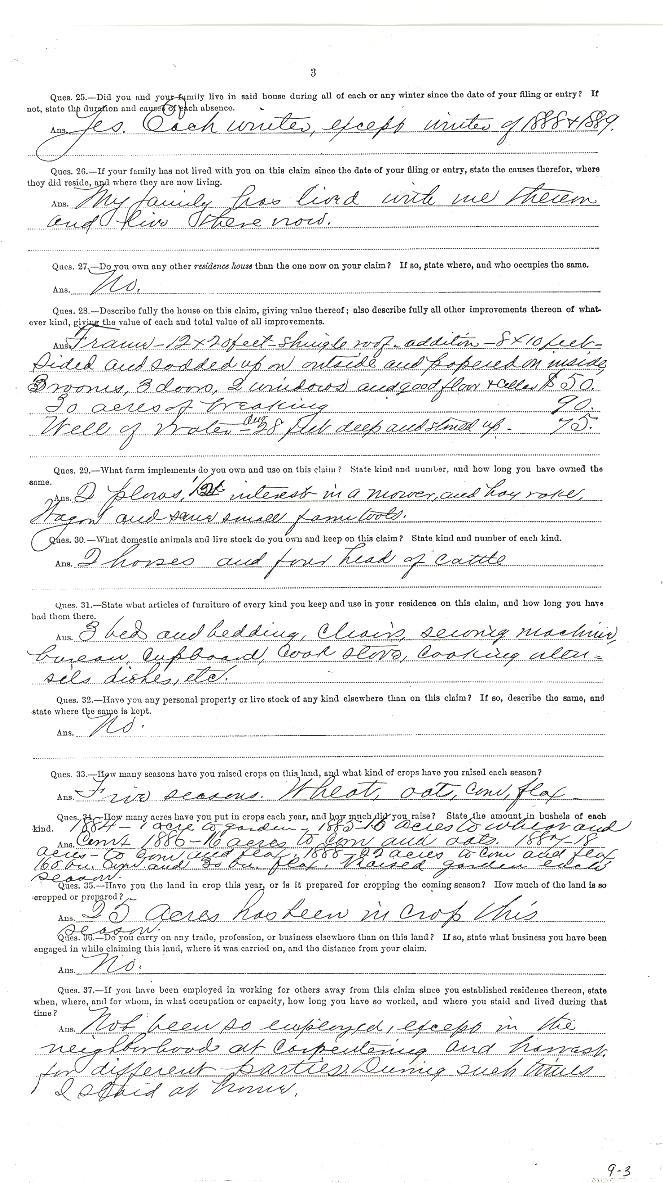 3
Ques. 25.—Did you and your family live in said house during all of each or any winter since the date of your filing or entry? If
not, state the duration and causes of each absence.
Ans. Yes. Each winter, except winter of 1888 & 1889.
Ques. 26.—If your family has not lived with you on this claim since the date of your filing or entry, state the causes therefor, where
they did reside, and where they are now living.
Ans. My family has lived with me thereon
and live there now.
Ques. 27.—Do you own any other residence house than the one now on your claim? If so, state where, and who occupies the same.
Ans. No.
Ques. 28.—Describe fully the house on this claim, giving value thereof; also describe fully all other improvements thereon of what-
ever kind, giving the value of each and total value of all improvements.
Ans. Frame - 12 x 20 feet - shingle roof - addition - 8 x 10 feet -
sided and sodded up on outside and papered on inside
3 rooms, 3 doors, 2 windows and good floor & cellar $50.
30 acres of breaking 90.
Well of Water - dug 28 feet deep and stoned up - 75.
Ques. 29.—What farm implements do you own and use on this claim? State kind and number, and how long you have owned the
same.
Ans. 2 plows, interest in a mower, and hay rake,
Wagon and some small farm tools.
Ques. 30.—What domestic animals and live stock do you own and keep on this claim? State kind and number of each kind.
Ans. 2 horses and four head of cattle
Ques. 31.—State what articles of furniture of every kind you keep and use in your residence on this claim, and how long you have
had them there.
Ans. 3 beds and bedding, chairs, sewing machine,
bureau, cupboard, cook stove, cooking uten-
sils dishes, etc.
Ques. 32.—Have you any personal property or live stock of any kind elsewhere than on this claim? If so, describe the same, and
state where the same is kept.
Ans. No.
Ques. 33.—How many seasons have you raised crops on this land, and what kind of crops have you raised each season?
Ans. Five seasons. Wheat, oat, corn, flax
Ques. 34.—How many acres have you put in crops each year, and how much did you raise? State the amount in bushels of each
kind. 1884 - 1 acre to garden - 1885 - 10 acres to wheat and
Ans. Corn. 1886 - 16 acres to corn and oats. 1887 - 18
acres - to corn and flax. 1888 acres to corn and flax
bu. corn and 30 bu. flax. Raised garden each
season.
Ques. 35.—Have you the land in crop this year, or is it prepared for cropping the coming season? How much of the land is so
cropped or prepared?
Ans. 25 acres has been in crop this
season.
Ques. 36.—Do you carry on any trade, profession, or business elsewhere than on this land? If so, state what business you have been
engaged in while claiming this land, where it was carried on, and the distance from your claim.
Ans. No.
Ques. 37.—If you have been employed in working for others away from this claim since you established residence thereon, state
when, where, and for whom, in what occupation or capacity, how long you have so worked, and where you staid and lived during that
time?
Ans. Not been so employed, except in the
neighborhood at carpentering and harvest.
for different parties. During such times
I staid at home.
9-3